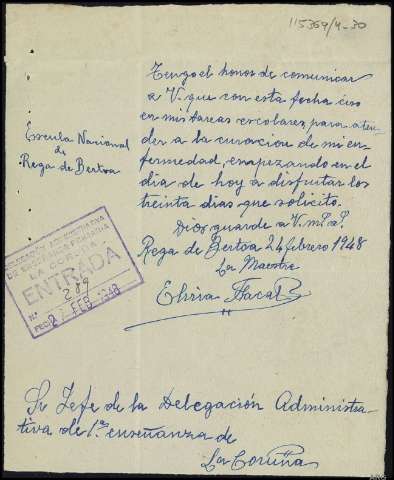 115369/4-30
Tengo el honor de comunicar
a V. que con esta fecha ceso
en mis tareas escolares, para aten-
der a la curación de mi en-
fermedad, empezando en el
dia de hoy a disfrutar los
treinta dias que solicito.
Dios guarde a V. m. a.
Rega de Bertoa 24 febrero 1948
La Maestra
Elvira Facal
Escuela Nacional
de
Rega de Bertoa
DELEGACION ADMINISTRATIVA
DE ENSEÑANZA PRIMARIA
LA CORUÑA
ENTRADA
N.º 289
FECHA 27 FEB 1948
Sr Jefe de la Delegación Administra-
tiva de 1ª enseñanza de
La Coruña